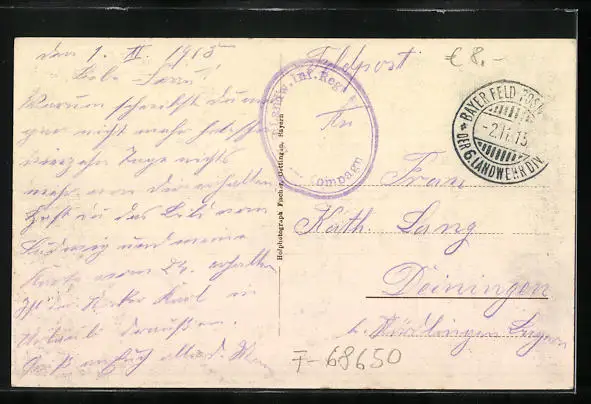 den 1. II. 1915
Warum schreibst du mir
gar nicht mehr
Tage nichts
mehr von dir erhalten
Hast du das Bild vom
Ludwig und meine
Karte vom 24. erhalten
Karl in
Urlaub draußen.
Gruß an Euch alle
Hofphotograph Fischer, Oettingen, Bayern
Feldpost
€ 8,-
Landw. Inf. Reg.
Compagn
BAYER. FELD-POST
-2.II.15
DER 6. LANDWEHR DIV.
An
Frau
Kath. Lang
Deiningen
b. Nördlingen Bayern
F-68650